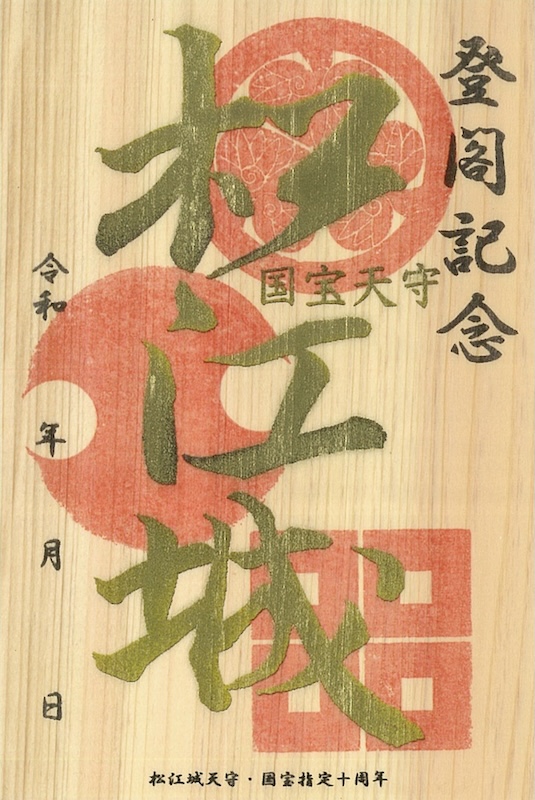 登閣記念
国宝天守
松江城
令和 年 月 日
松江城天守・国宝指定十周年